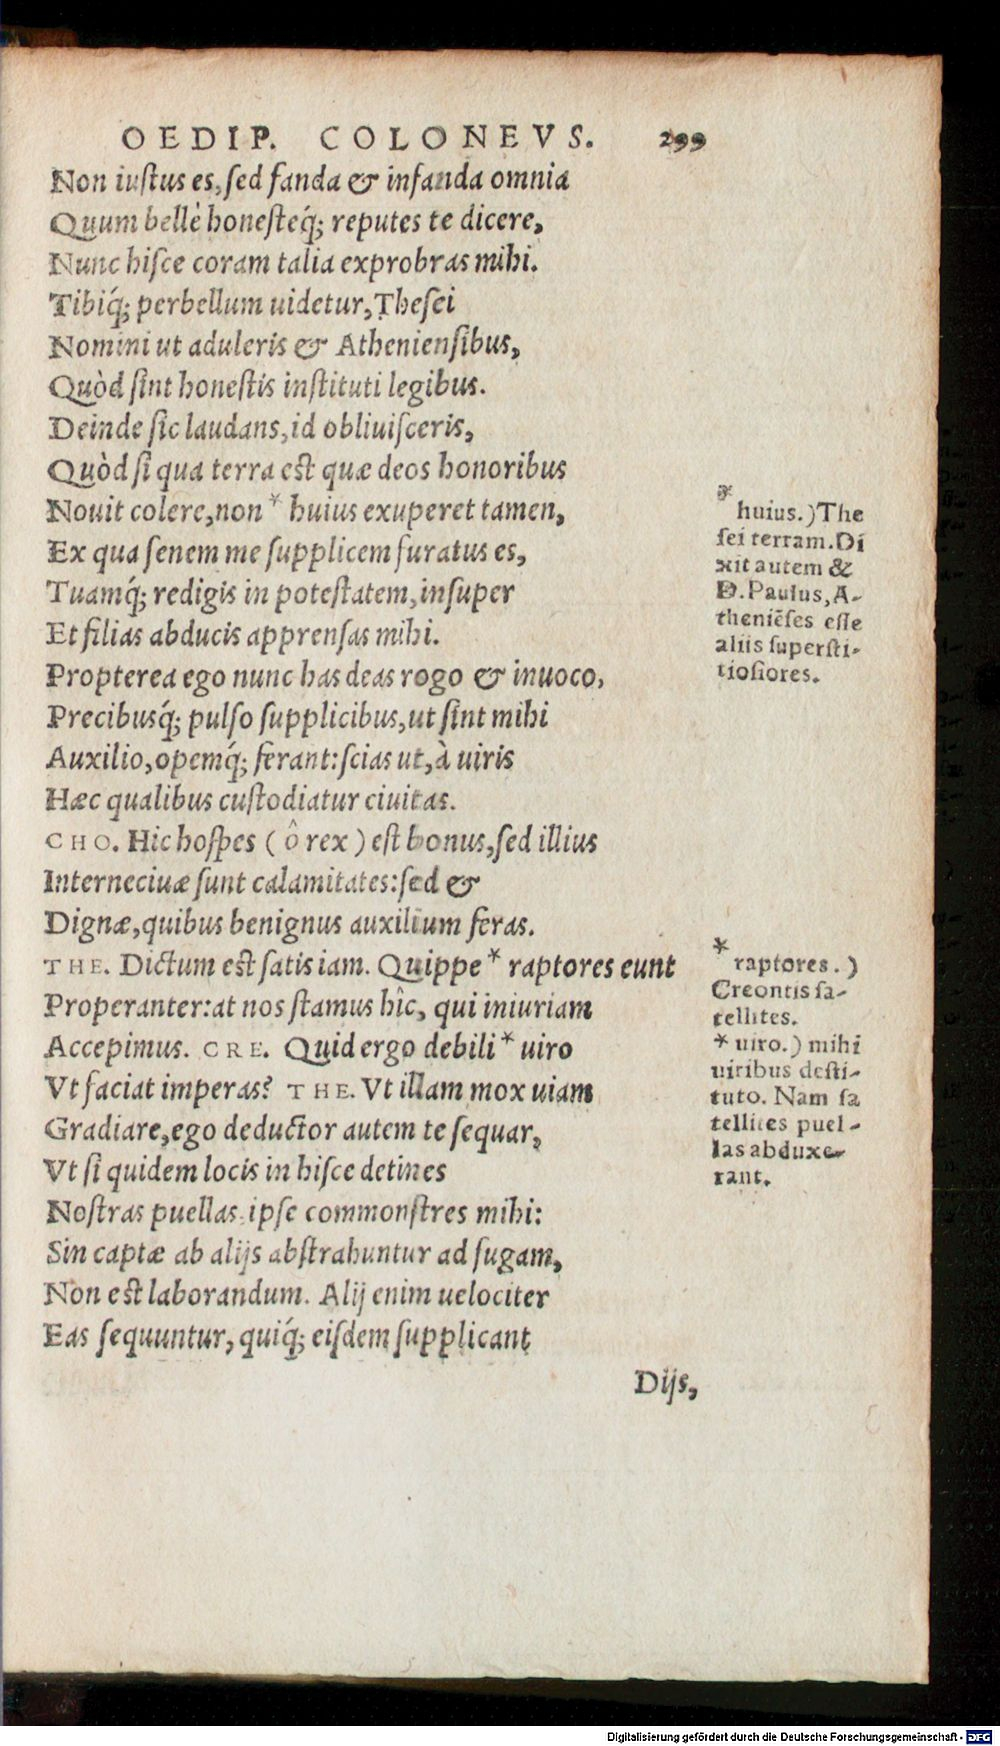 OEDIP. COLONEVS. 299
Non iustus es, sed fanda & infanda omnia
Quum bellè honesteq́; reputes te dicere,
Nunc hisce coram talia exprobras mihi.
Tibiq́; perbellum uidetur, Thesei
Nomini ut aduleris & Atheniensibus,
Quòd sint honestis instituti legibus.
Deinde sic laudans, id obliuisceris,
Quòd si qua terra est quæ deos honoribus
Nouit colere, non * huius exuperet tamen,
Ex qua senem me supplicem furatus es,
Tuamq́; redigis in potestatem, insuper
Et filias abducis apprensas mihi.
Propterea ego nunc has deas rogo & inuoco,
Precibusq́; pulso supplicibus, ut sint mihi
Auxilio, opemq́; ferant: scias ut, à uiris
Hæc qualibus custodiatur ciuitas.
CHO. Hic hospes ( ô rex ) est bonus, sed illius
Interneciuæ sunt calamitates: sed &
Dignæ, quibus benignus auxilium feras.
THE. Dictum est satis iam. Quippe * raptores eunt
Properanter: at nos stamus hîc, qui iniuriam
Accepimus. CRE. Quid ergo debili * uiro
Vt faciat imperas? THE. Vt illam mox uiam
Gradiare, ego deductor autem te sequar,
Vt si quidem locis in hisce detines
Nostras puellas, ipse commonstres mihi:
Sin captæ ab alijs abstrahuntur ad fugam,
Non est laborandum. Alij enim uelociter
Eas sequuntur, quiq́; eisdem supplicant
Dijs,
*
huius.) The
sei terram. Di
xit autem &
D. Paulus, A-
theniẽses esse
aliis supersti-
tiosiores.
*
raptores.)
Creontis sa-
tellites.
* uiro.) mihi
uiribus desti-
tuto. Nam sa
tellites puel-
las abduxe-
rant.
Digitalisierung gefördert durch die Deutsche Forschungsgemeinschaft - DFG